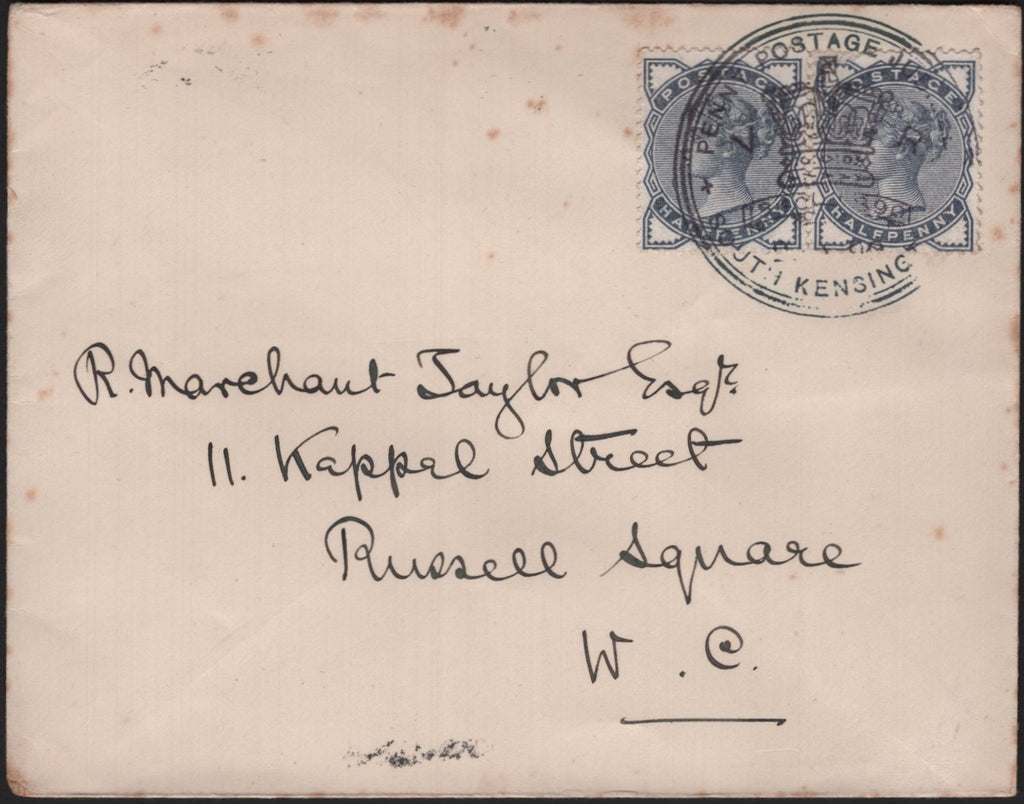 PENNY POSTAGE
POSTAGE POSTAGE
V R
HALFPENNY HALFPENNY
SOUTH KENSING
R. Marchant Taylor Esqr.
11. Kappel Street
Russell Square
W. C.